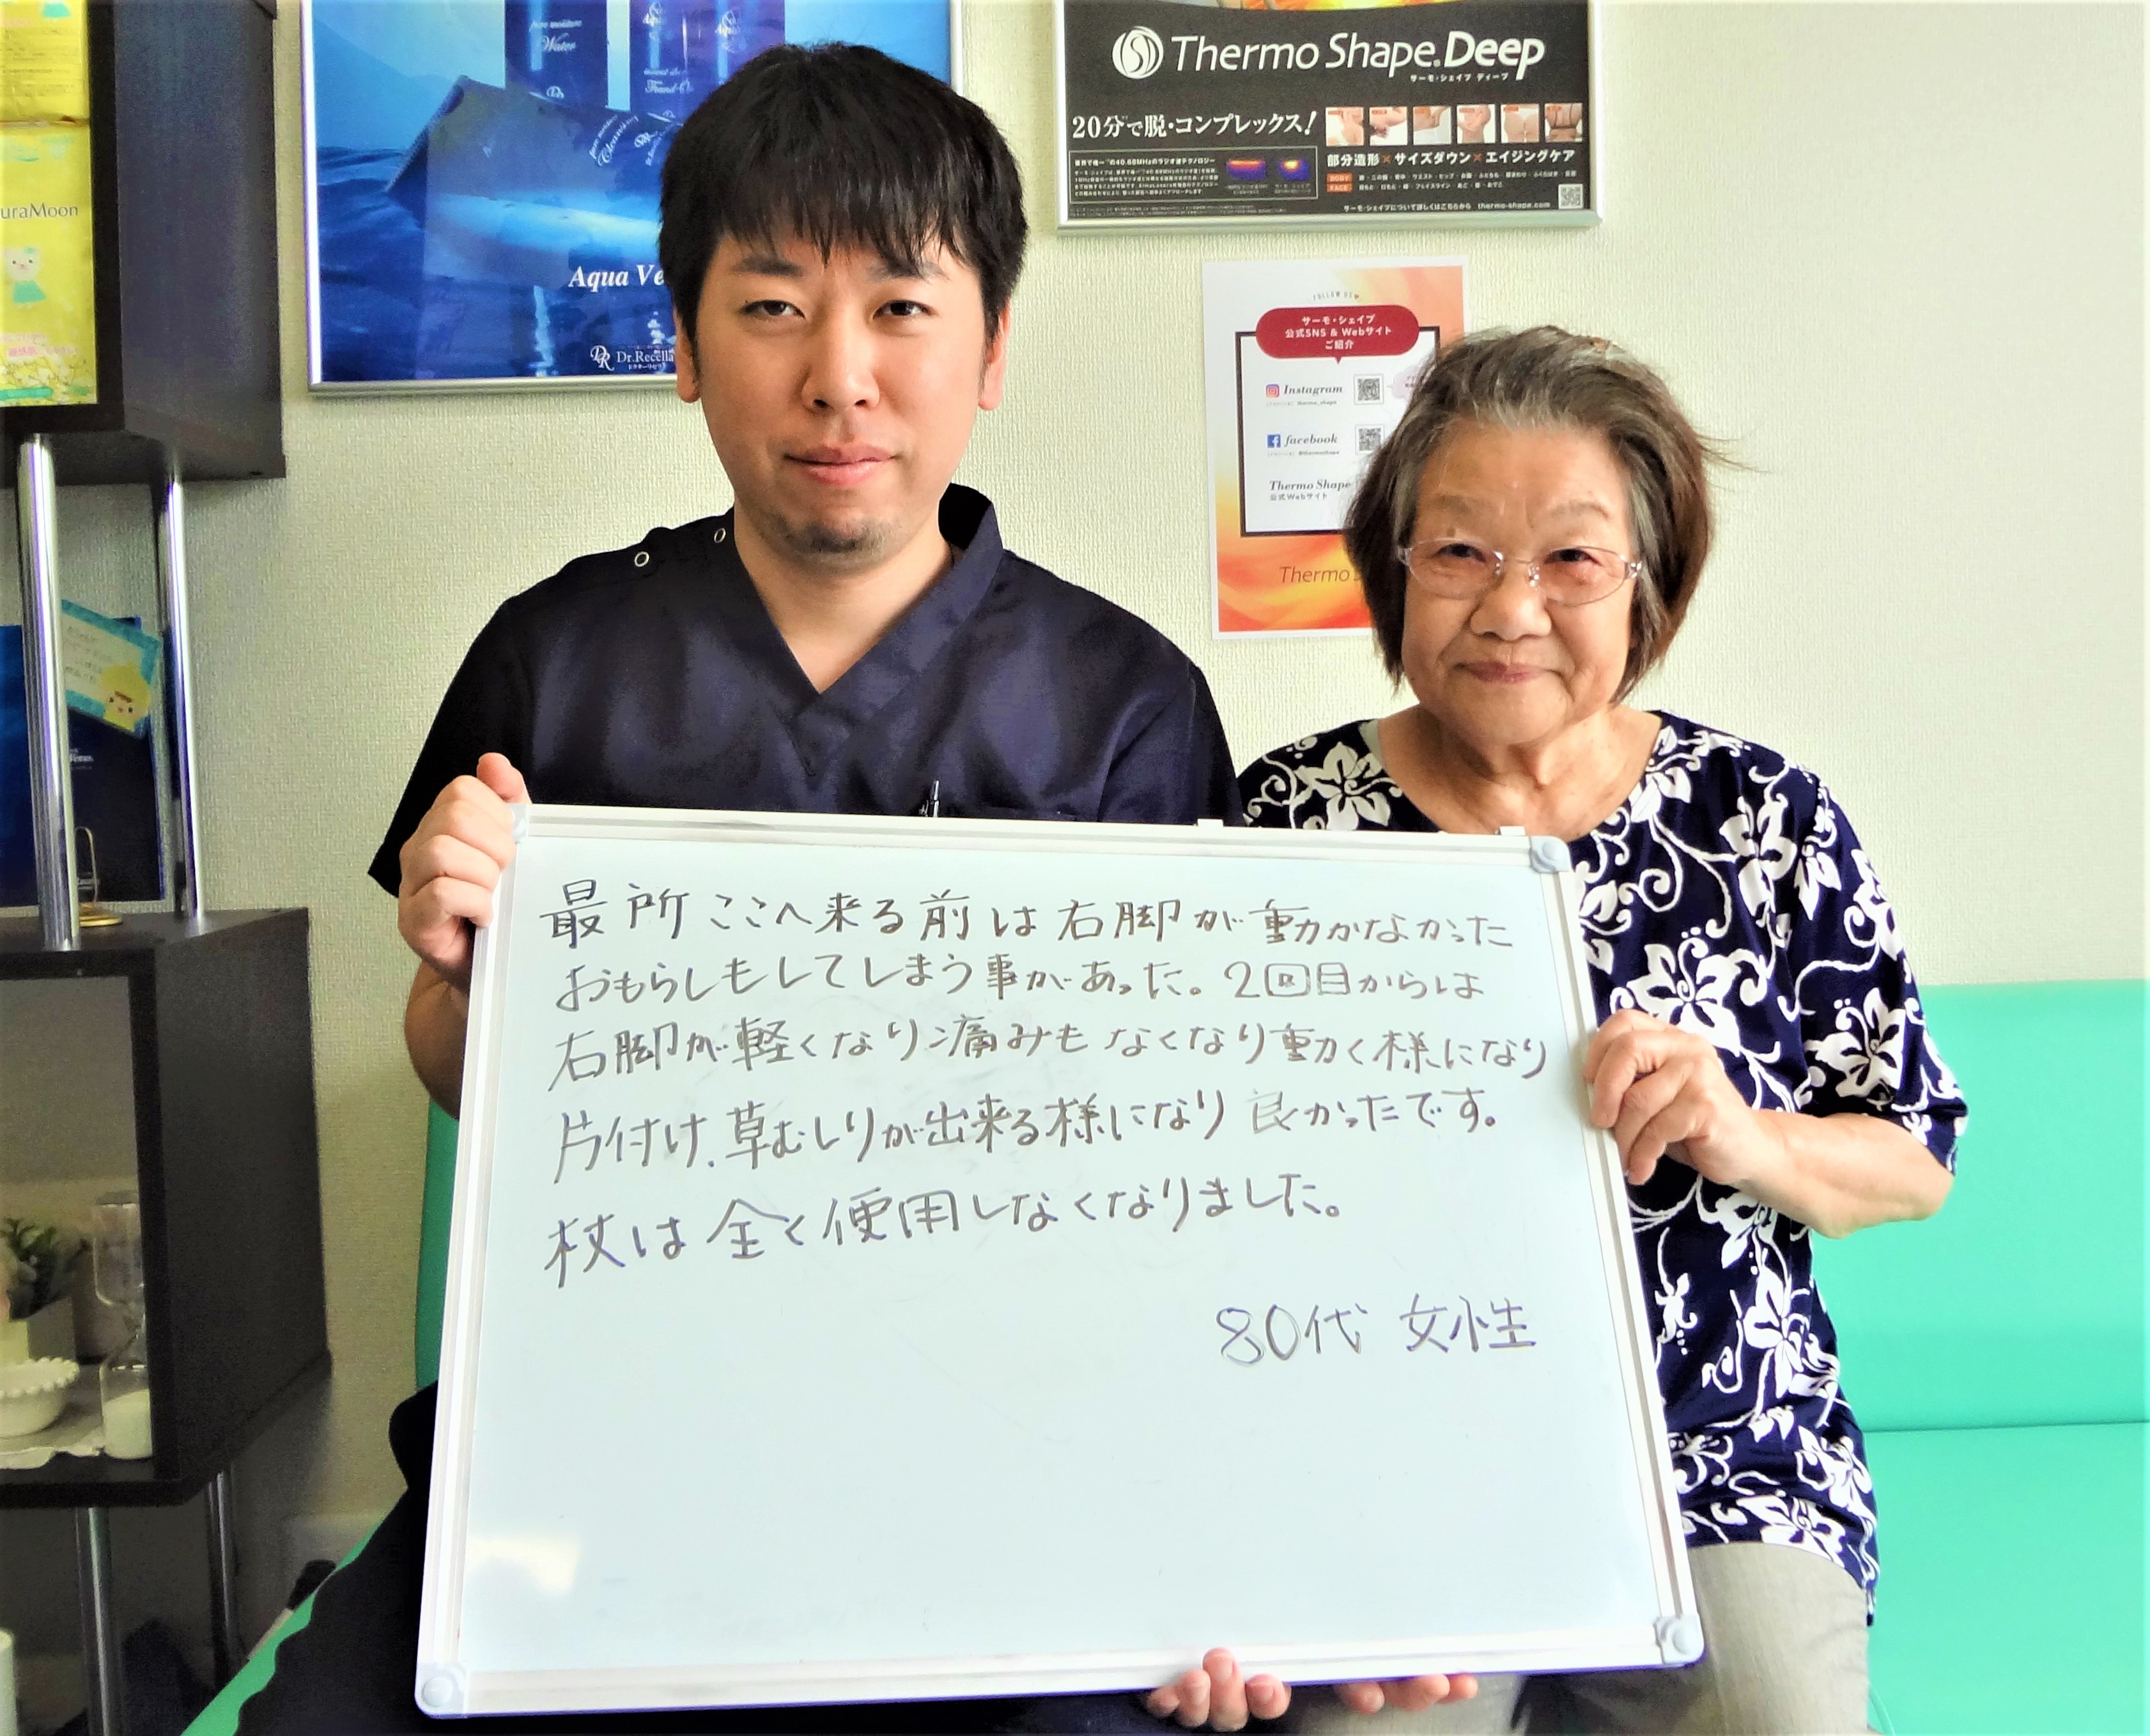 Water
Aqua Ve
Dr.Recella
ドクターリセラ
uraMoon
Thermo Shape.Deep
サーモ・シェイプ ディープ
20分で脱・コンプレックス!
部分造形×サイズダウン×エイジングケア
BODY
FACE
サーモ・シェイプについて詳しくはこちらから thermo-shape.com
FOLLOW US
サーモ・シェイプ
公式SNS & Webサイト
ご紹介
Instagram
facebook
Thermo Shape
公式Webサイト
Thermo S
最所ここへ来る前は右脚が動かなかった
おもらしもしてしまう事があった。2回目からは
右脚が軽くなり痛みもなくなり動く様になり
片付け、草むしりが出来る様になり良かったです。
杖は全く使用しなくなりました。
80代 女性